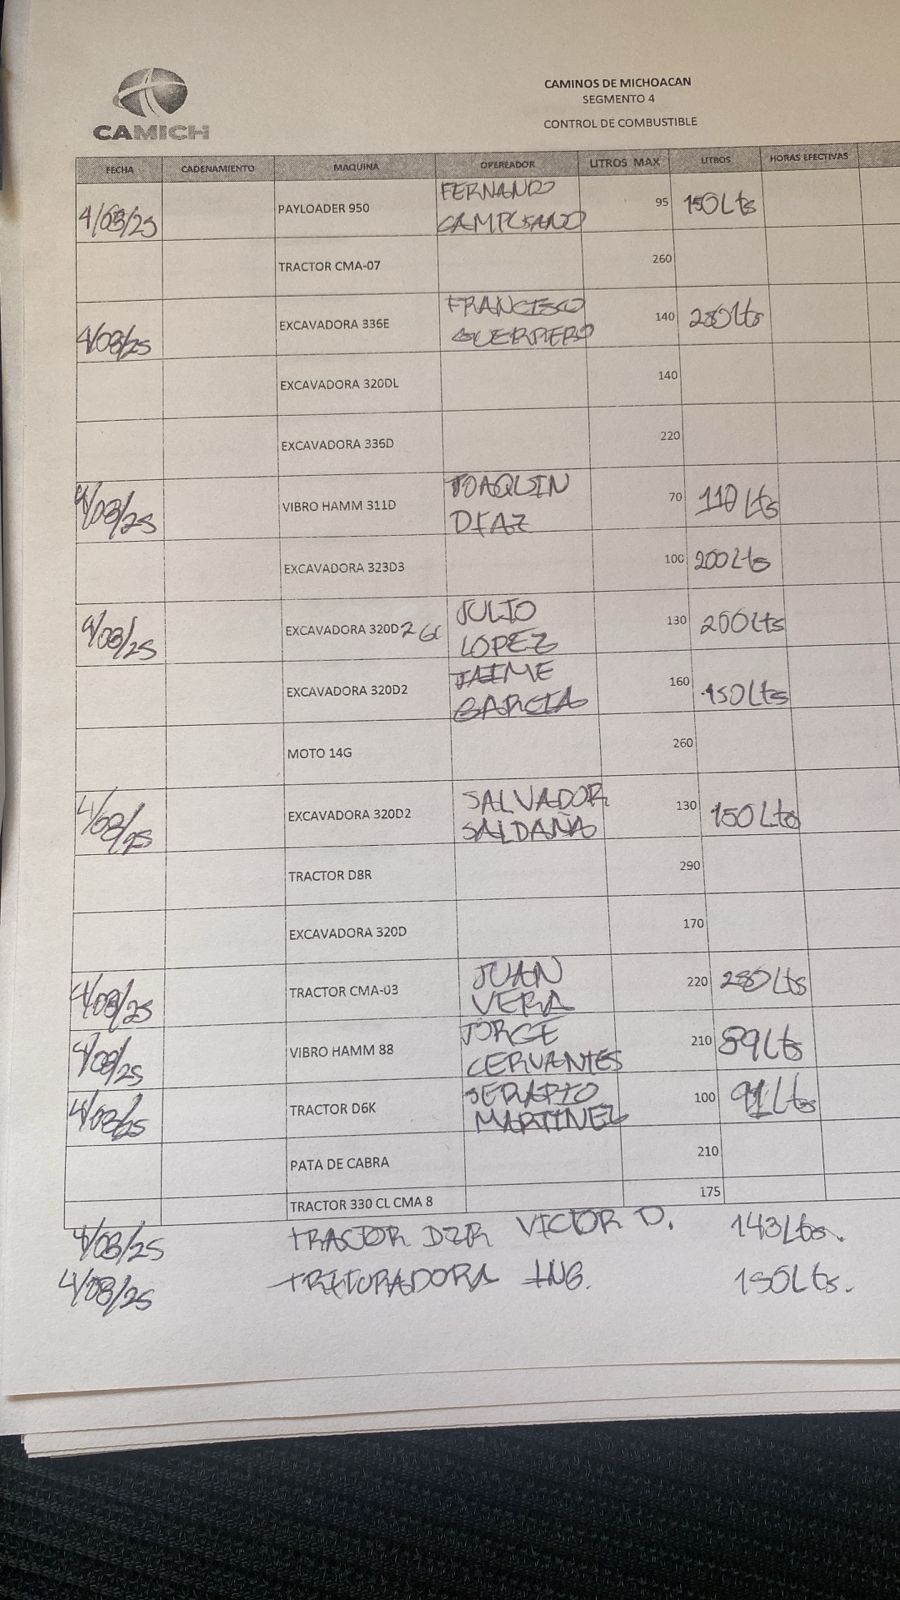 CAMICH
CAMINOS DE MICHOACAN
SEGMENTO 4
CONTROL DE COMBUSTIBLE
FECHA CADENAMIENTO MAQUINA OPEREADOR LITROS MAX LITROS HORAS EFECTIVAS
4/08/25 PAYLOADER 950 FERNANDO 95 150 Lts
TRACTOR CMA-07 260
4/08/25 EXCAVADORA 336E FRANCISCO GUERRERO 140 280 Lts
EXCAVADORA 320DL 140
EXCAVADORA 336D 220
4/08/25 VIBRO HAMM 311D JOAQUIN DIAZ 70 110 Lts
EXCAVADORA 323D3 100 200 Lts
4/08/25 EXCAVADORA 320D2 GC JULIO LOPEZ 130 200 Lts
EXCAVADORA 320D2 JAIME GARCIA 160 150 Lts
MOTO 14G 260
4/08/25 EXCAVADORA 320D2 SALVADOR SALDAÑA 130 150 Lts
TRACTOR D8R 290
EXCAVADORA 320D 170
4/08/25 TRACTOR CMA-03 JUAN VERA 220 280 Lts
4/08/25 VIBRO HAMM 88 JORGE CERVANTES 210 89 Lts
4/08/25 TRACTOR D6K SERAPIO MARTINEZ 100 91 Lts
PATA DE CABRA 210
TRACTOR 330 CL CMA 8 175
4/08/25 TRACTOR VICTOR D. 143 Lts.
4/08/25 TRITURADORA ING. 150 Lts.